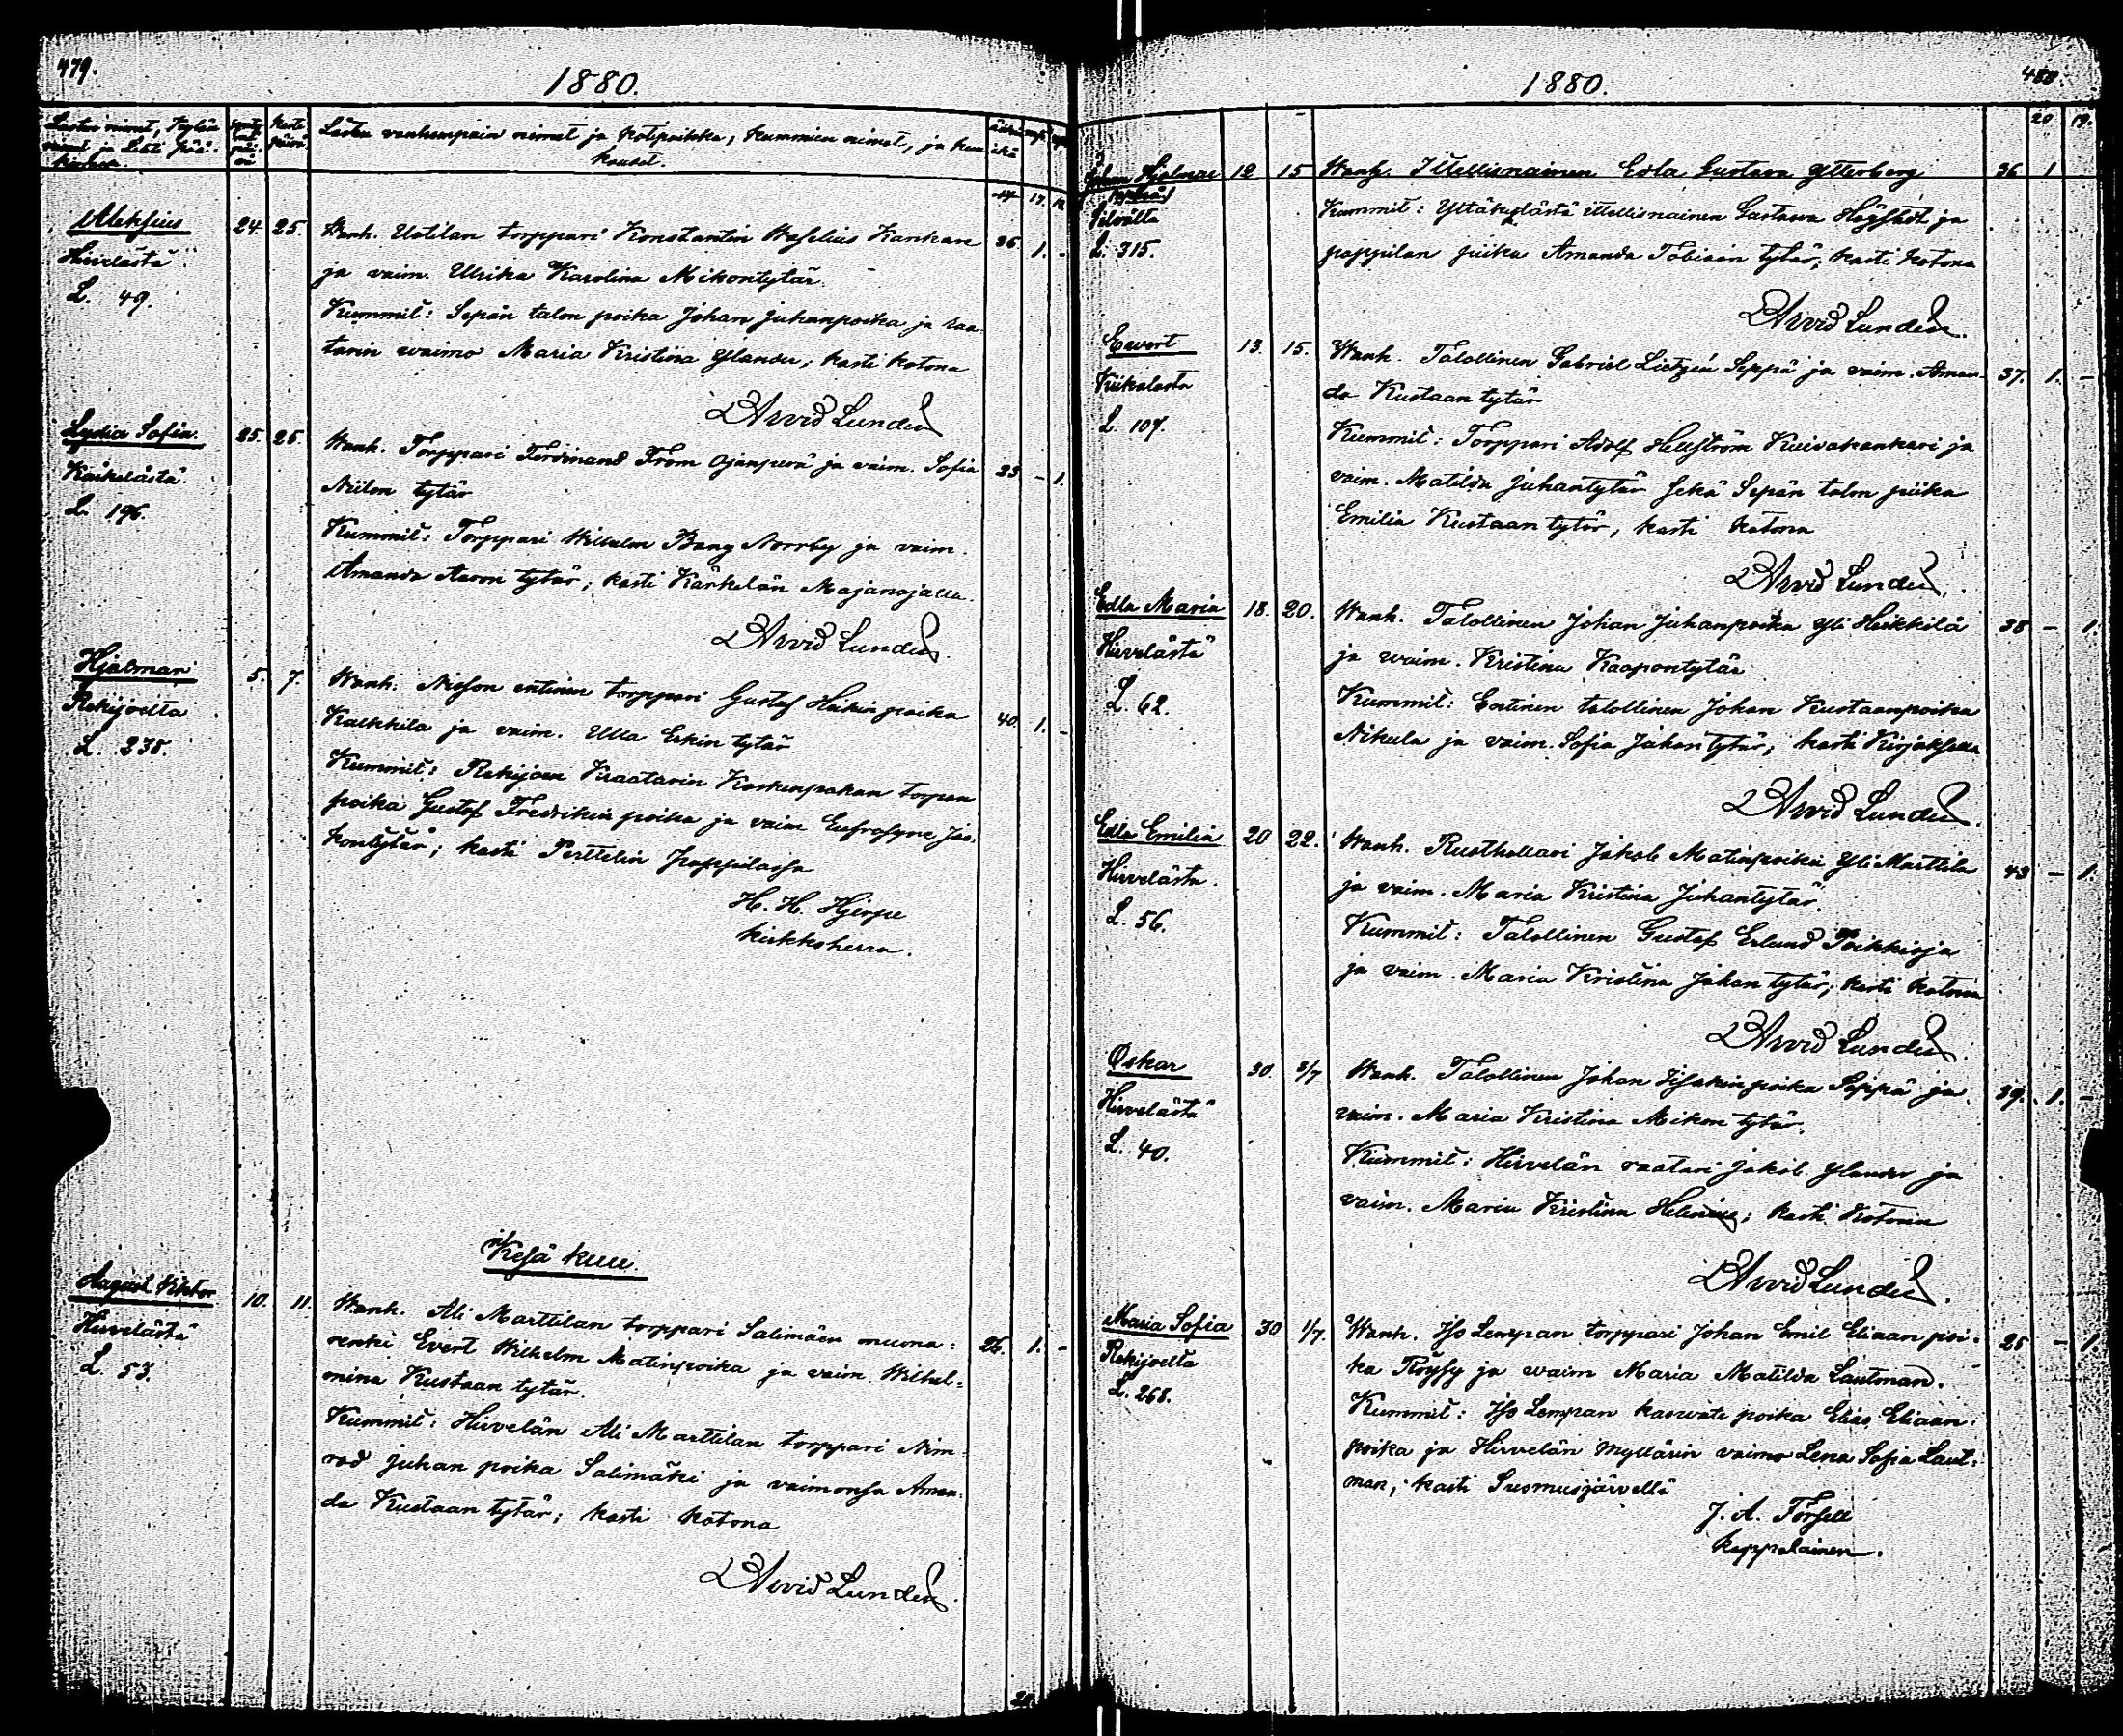 479.
1880.
Lasten nimet, kylän
nimet ja Lasti kir-
kossa.
synty-
mä-
päi-
vä
kaste
päivä
Lasten vanhempain nimet ja kotipaikka, kummien nimet, ja kuu-
kaudet.
äitin
ikä
mp.
vp.
17. 18.
Aleksius
Hirvelästä
L. 49.
24. 25.
Wanh. Uotilan torppari Konstantin Wafelius Kankare
36. 1. -
ja vaim. Ulrika Karolina Mikontytär.
Kummit: Sepän talon poika Johan Juhanpoika ja raa-
tarin waimo Maria Kristina Ylander; kasti kotona
Arvid Lundén
Lydia Sofia.
Kärkelästä.
L. 196.
25. 25.
Wank. Torppari Ferdinand From Ojanperä ja vaim. Sofia
33 - 1.
Niilon tytär
Kummit: Torppari Wilhelm Bang Norrby ja vaim.
Amanda Aaron tytär; kasti Kärkelän Majanojalla.
Arvid Lundén.
Hjalmar
Rekijoelta
L. 235.
5. 7.
Wanh. Nisson entinen torppari Gustaf Heikin poika
40. 1. -
Kalkkila ja vaim. Ulla Erkin tytär
Kummit: Rekijoen Kraatarin Koskenpahan torpan
poika Gustaf Fredrikin poika ja vaim Eufrosyne Jaa-
kontytär; kasti Perttelin pappilassa
H. H. Hjerpe
kirkkoherra.
Kesä kuu.
August Viktor
Hirvelästä
L. 53.
10. 11.
Wanh. Ali Marttilan torppari Salimäen muona-
26. 1. -
renki Evert Wilhelm Matinpoika ja vaim. Wilhel-
mina Kustaan tytär.
Kummit: Hirvelän Ali Marttilan torppari Nim-
rod Juhan poika Salimäki ja vaimonsa Aman-
da Kustaan tytär; kasti kotona
Arvid Lundén.
1880.
480.
20 19.
Johan Hjalmar
L. 315.
12 15
Wanh. Itsellisnainen Edla Gustava Ytterberg
36 1
Kummit: Yltäkylästä ittellisnainen Gustava Högstedt ja
pappilan piika Amanda Tobiaan tytär; kasti kotona
Arvid Lundén.
Evert
Kiikalasta
L. 107.
13. 15.
Wanh. Talollinen Gabriel Lietzén Seppä ja vaim. Aman-
37. 1. -
da Kustaan tytär
Kummit: Torppari Adolf Hellström Kuivakankari ja
vaim. Matilda Juhantytär sekä Sepän talon piika
Emilia Kustaan tytär, kasti kotona
Arvid Lundén.
Edla Maria
Hirvelästä
L. 62.
18. 20.
Wanh. Talollinen Johan Juhanpoika Yli Heikkilä
38 - 1.
ja waim. Kristina Kaapontytär
Kummit: Entinen talollinen Johan Kustaanpoika
Nikula ja vaim. Sofia Juhantytär; kasti Kirjaksella
Arvid Lundén.
Edla Emilia
Hirvelästä.
L. 56.
20 22.
Wanh. Rusthollari Jakob Matinpoika Yli Marttila
43 - 1.
ja vaim. Maria Kristina Juhantytär.
Kummit: Talollinen Gustaf Erlund Poikkioja
ja vaim. Maria Kristina Juhan tytär; kasti kotona
Arvid Lundén.
Oskar
Hirvelästä
L. 40.
30. 3/7
Wanh. Talollinen Johan Iisakin poika Seppä ja
39. 1. -
vaim. Maria Kristina Mikon tytär.
Kummit: Hirvelän raatari Jakob Ylander ja
vaim. Maria Kristina Helenius; kasti kotona
Arvid Lundén.
Maria Sofia
Rekijoelta
L. 268.
30 1/7.
Wanh. Iso Lempan torppari Johan Emil Eliaan poi-
25 - 1.
ka Röysy ja waim Maria Matilda Lautman.
Kummit: Iso Lempan kasvate poika Elias Eliaan
poika ja Hirvelän Myllärin vaimo Lena Sofia Laut-
man; kasti Suomusjärvellä
J. A. Forsell
kappalainen.